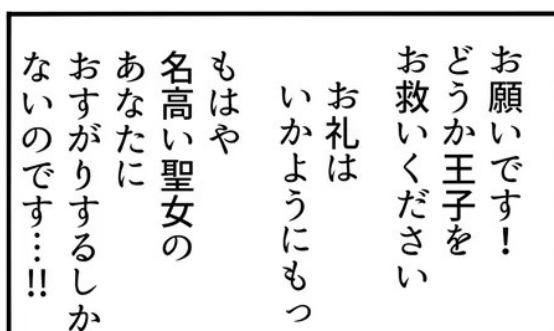 お願いです！
どうか王子を
お救いください
お礼は
いかようにもっ
もはや
名高い聖女の
あなたに
おすがりするしか
ないのです…!!